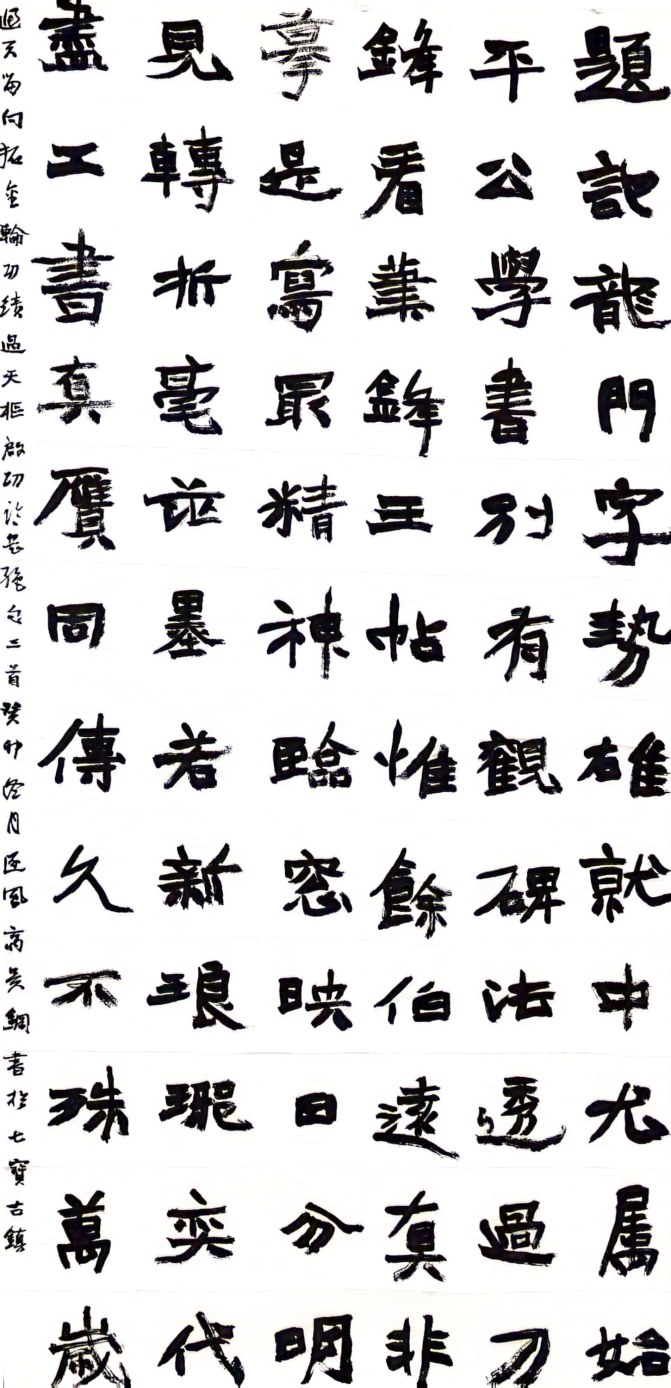 題記龍門字勢雄就中尤属始
平公學書別有觀碑法透過刀
鋒看筆鋒王帖惟餘伯遠真非
摹是寫最精神臨窓映日分明
見轉折毫芒墨若新琅琊奕代
盡工書真贋同傳久不殊萬歲
通天留向拓金輪功績過天樞啟功論書絕句三首癸卯冬月風書於七寶古鎮